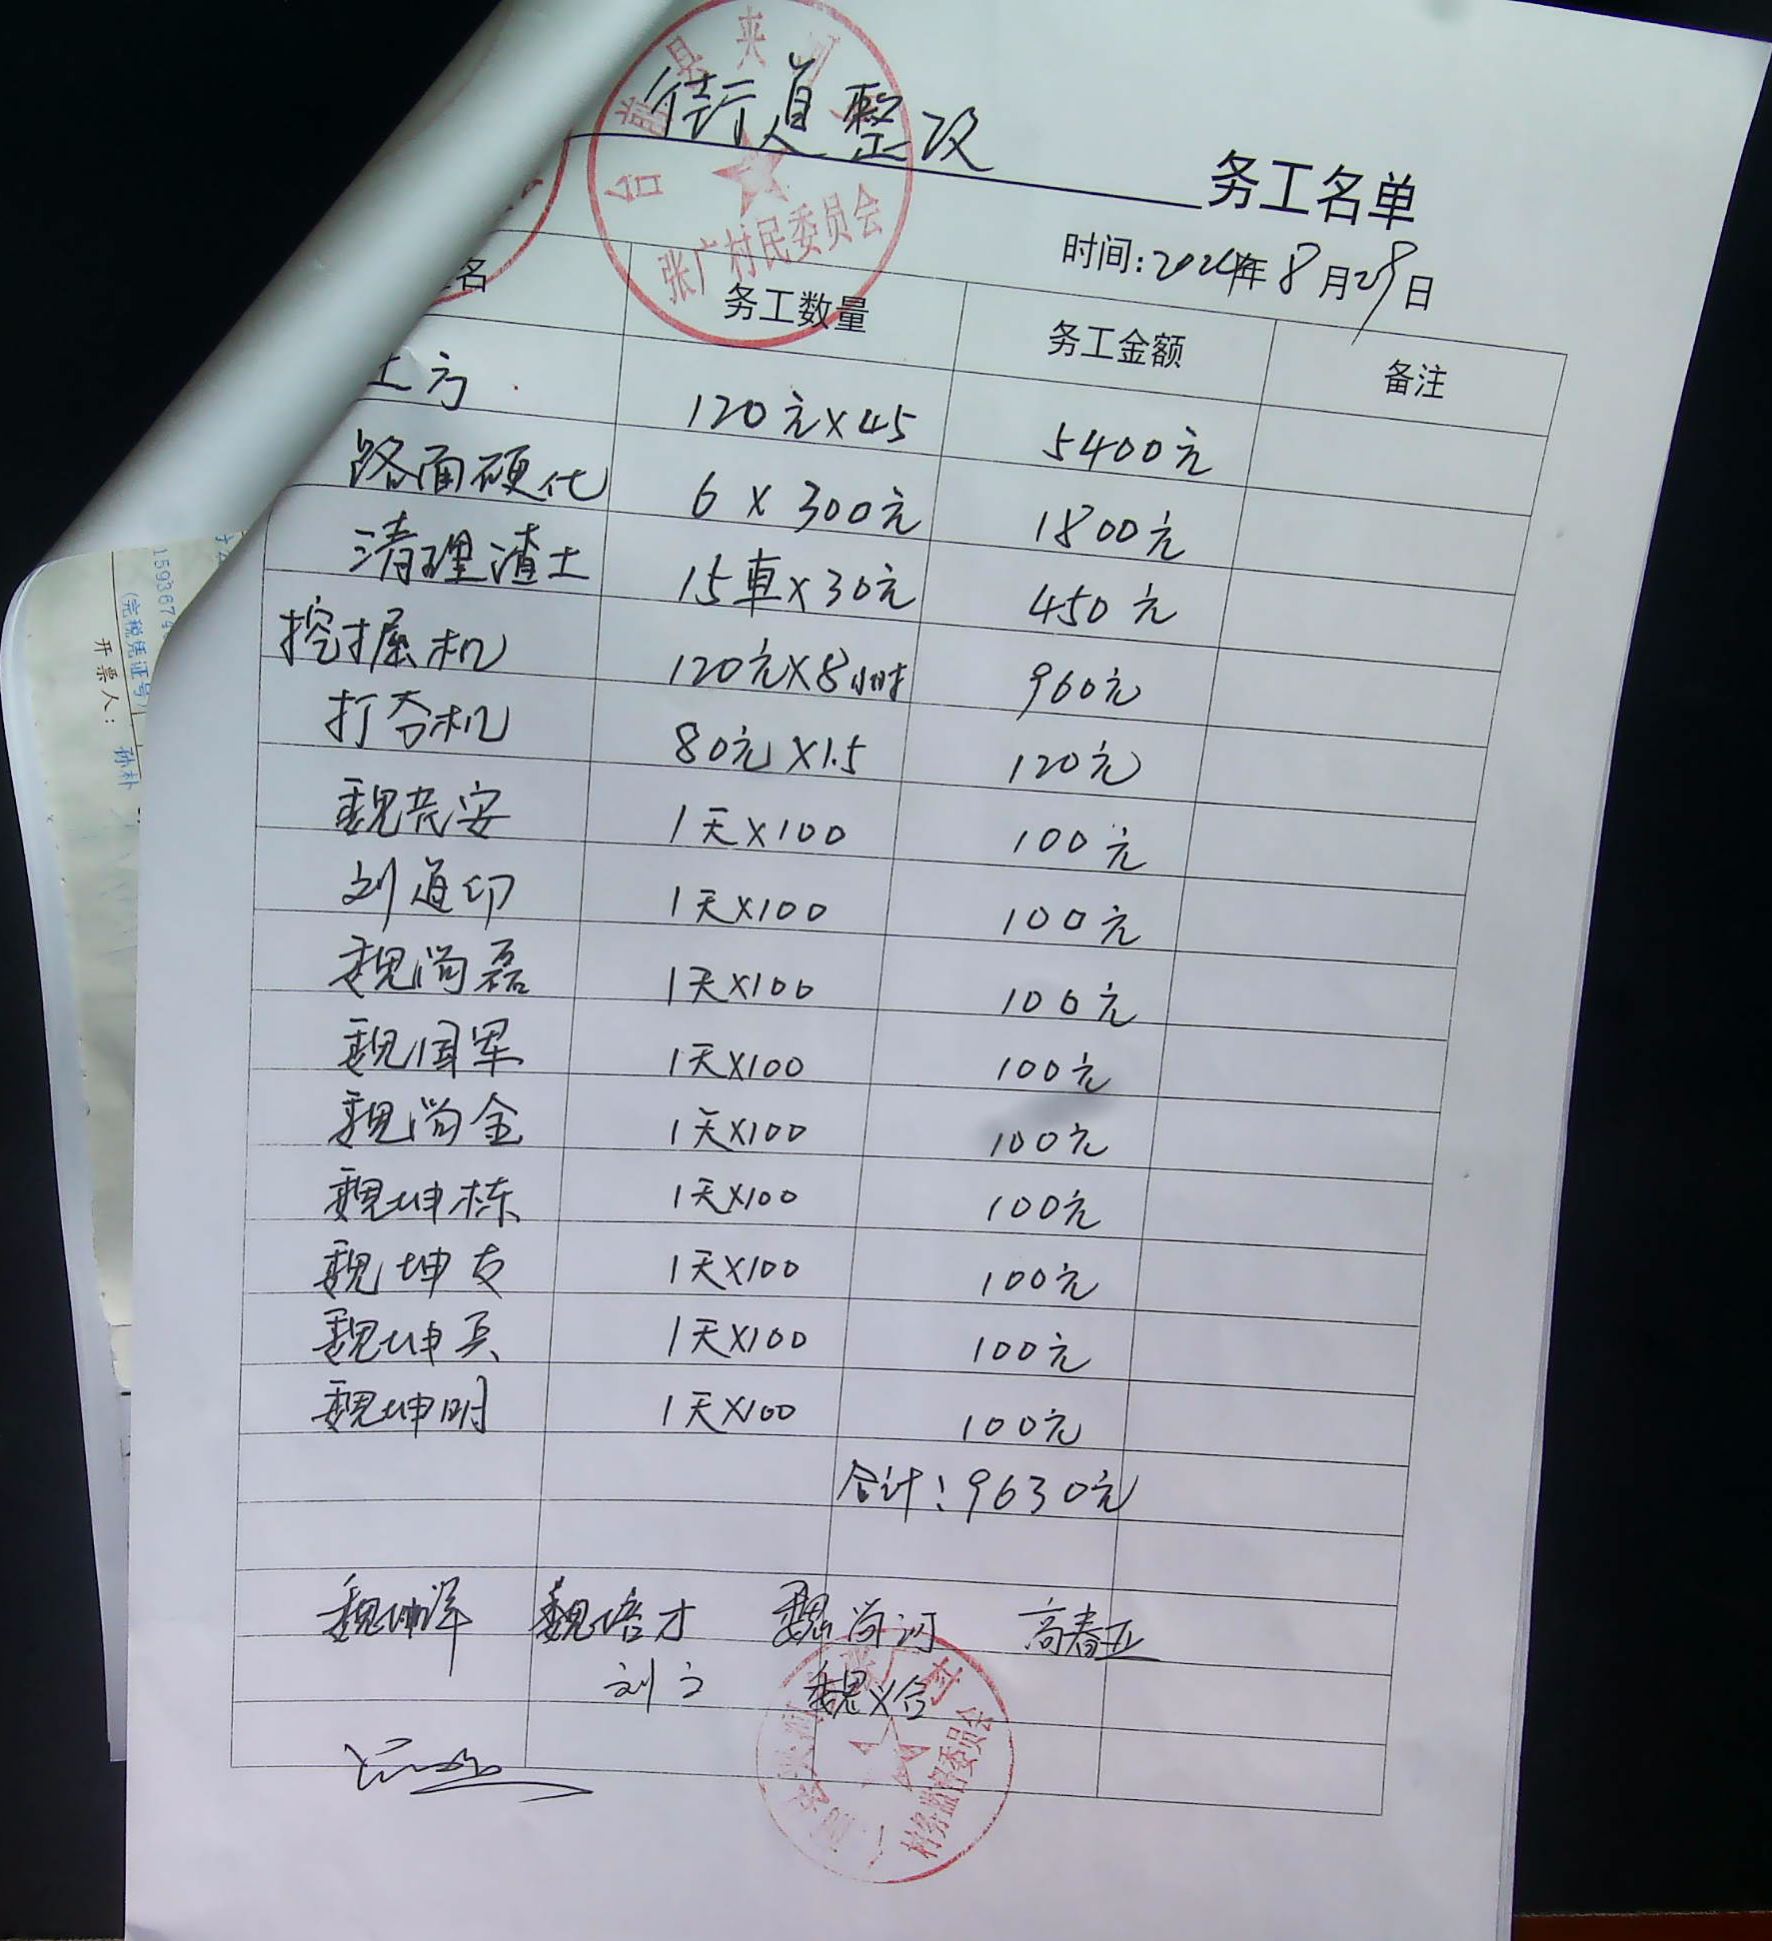 街道整改 务工名单
台前县夹河
张广村民委员会
时间:2024年8月29日
名 务工数量 务工金额 备注
土方 120元×45 5400元
路面硬化 6×300元 1800元
清理渣土 15車×30元 450元
挖掘机 120元×8小时 960元
打夯机 80元×1.5 120元
魏共安 1天×100 100元
刘道印 1天×100 100元
魏尚磊 1天×100 100元
魏国军 1天×100 100元
魏尚金 1天×100 100元
魏坤栋 1天×100 100元
魏坤友 1天×100 100元
魏坤兵 1天×100 100元
魏坤明 1天×100 100元
合计:9630元
魏坤洋 魏培才 魏尚河 高春亚
刘立 魏义合
村务监督委员会
1593674
(完税凭证号)
开票人: 孙朴